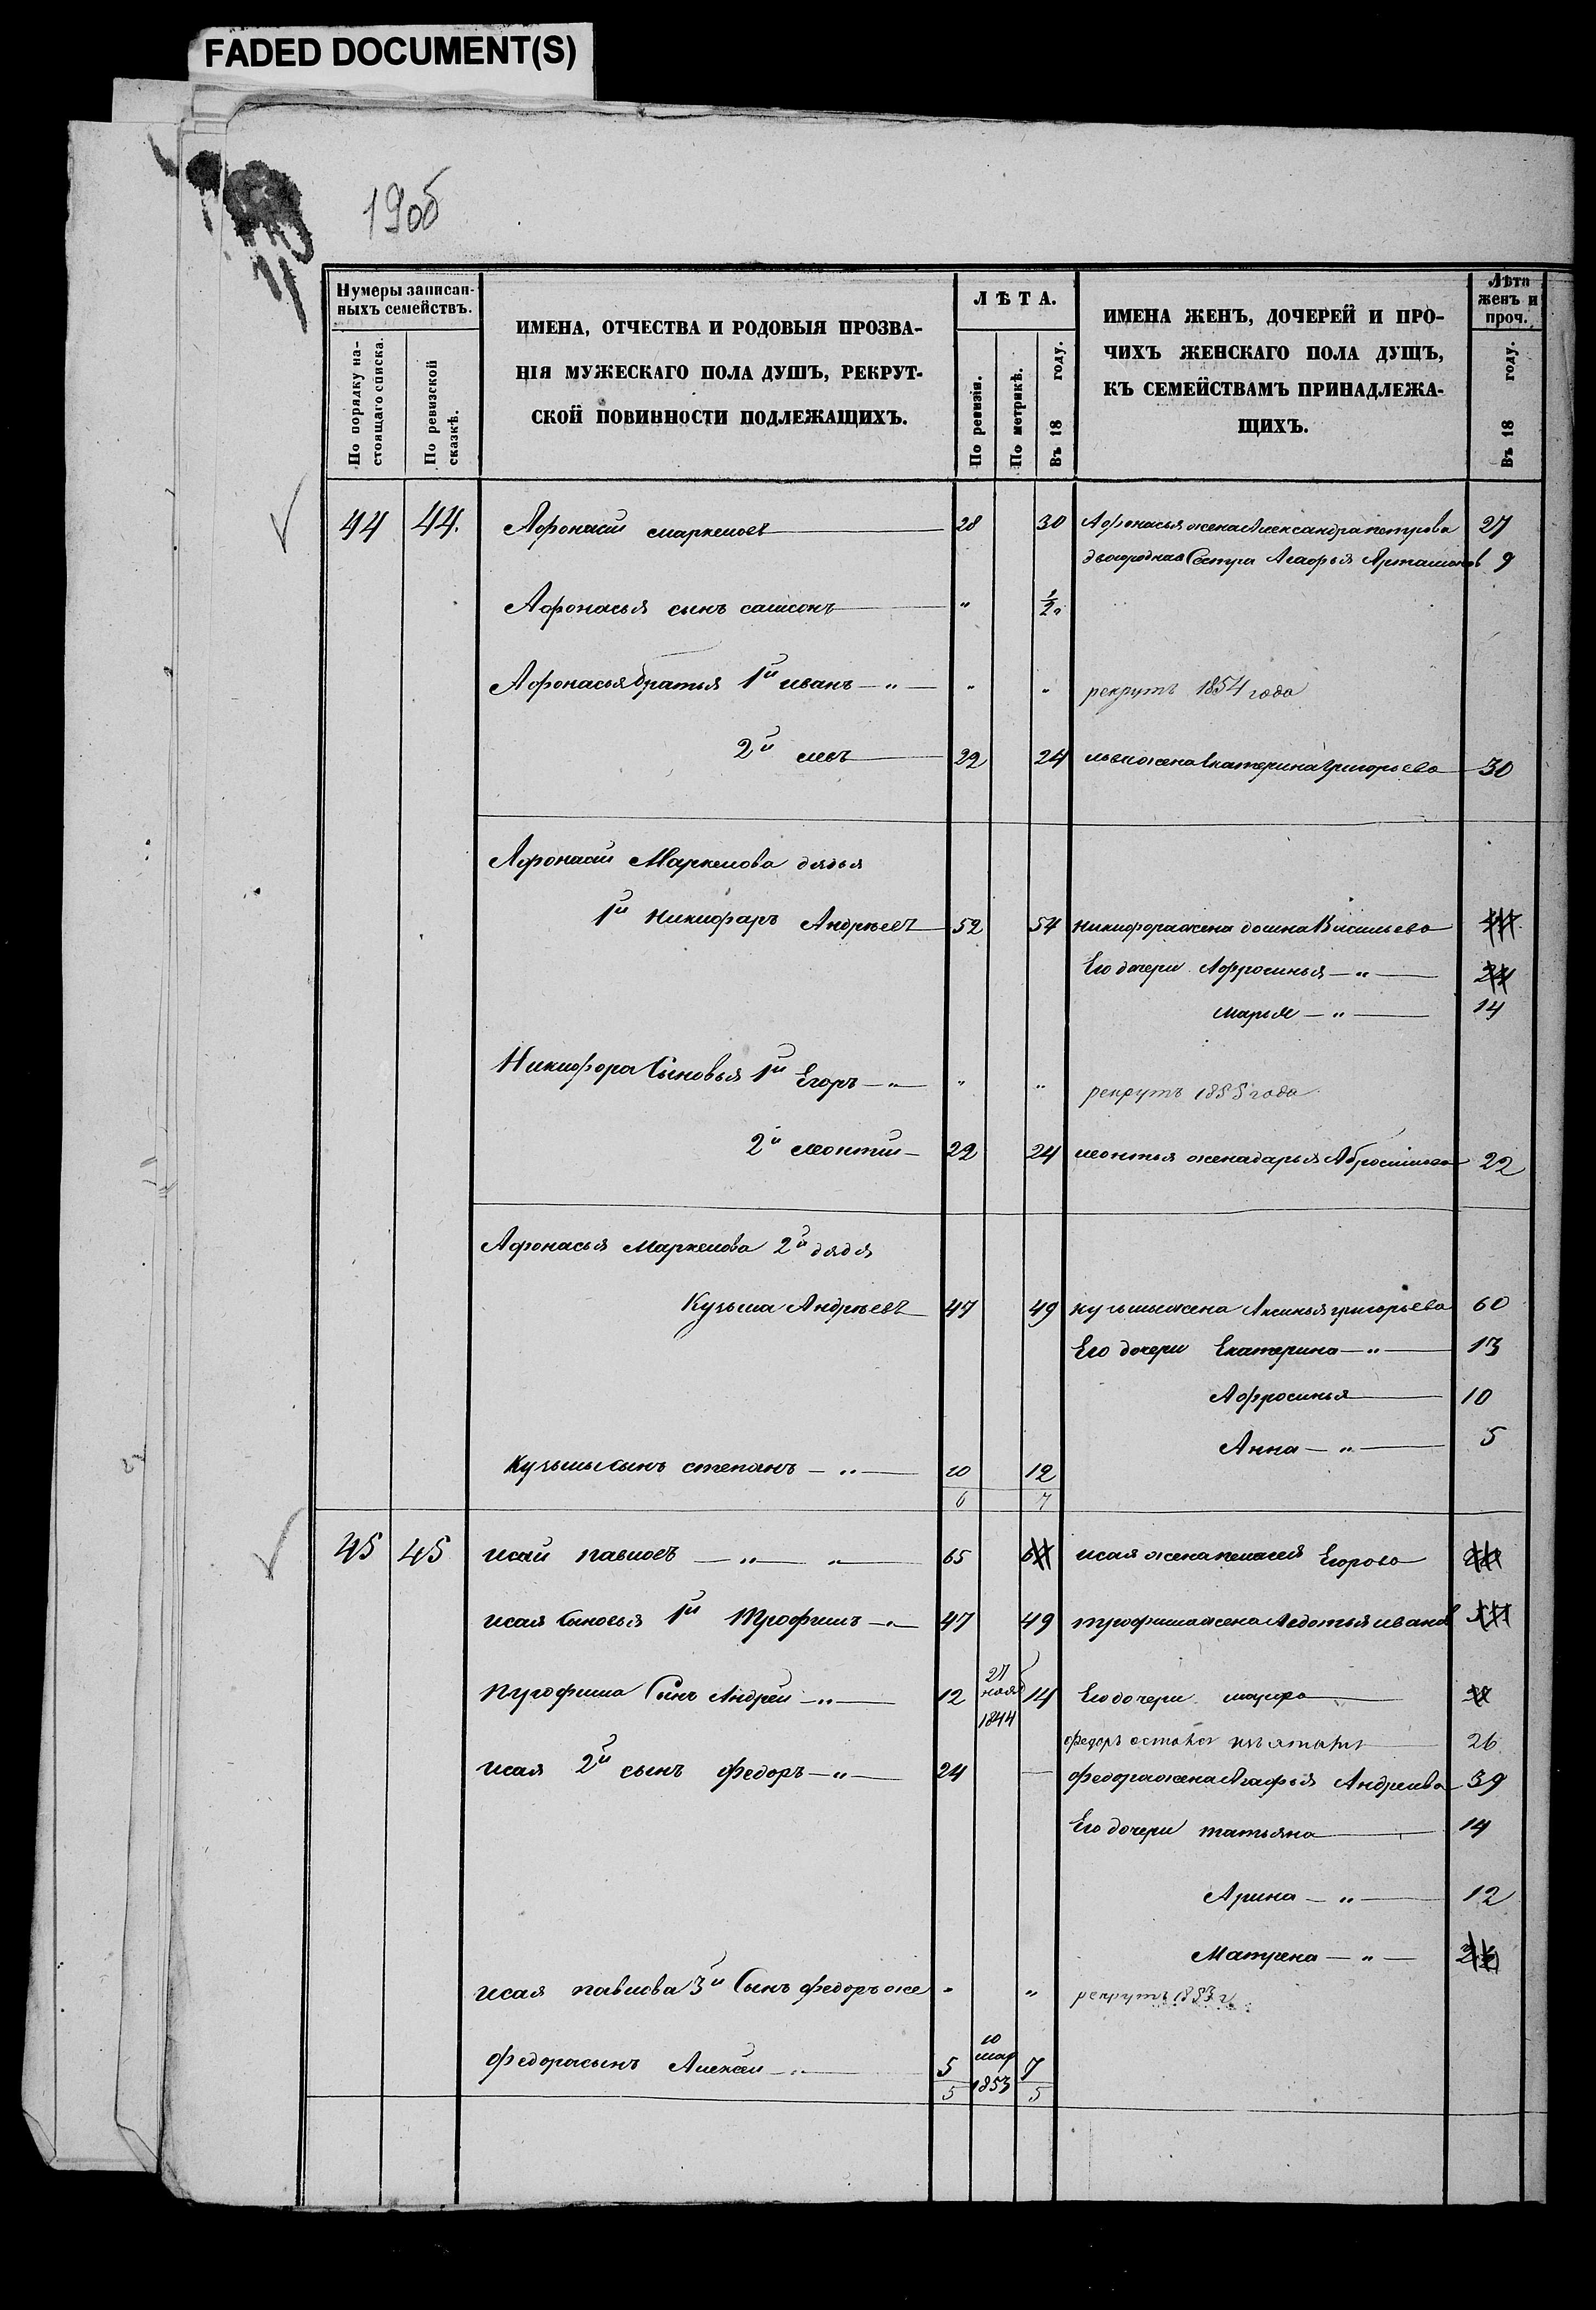 FADED DOCUMENT(S)
190б
Нумеры записан-
ныхъ семействъ.
По порядку на-
стоящаго списка.
По ревизской
сказкѣ.
ИМЕНА, ОТЧЕСТВА И РОДОВЫЯ ПРОЗВА-
НІЯ МУЖЕСКАГО ПОЛА ДУШЪ, РЕКРУТ-
СКОЙ ПОВИННОСТИ ПОДЛЕЖАЩИХЪ.
ЛѢТА.
По ревизіи.
По метрикѣ.
Въ 18 году.
ИМЕНА ЖЕНЪ, ДОЧЕРЕЙ И ПРО-
ЧИХЪ ЖЕНСКАГО ПОЛА ДУШЪ,
КЪ СЕМЕЙСТВАМЪ ПРИНАДЛЕЖА-
ЩИХЪ.
Лѣта
женъ и
проч.
Въ 18 году.
44 44. Афонасій маркеловъ 28 30 Афонасья жена Александра петрова 27
двоюродная Сестра Агафья 9
Афонасья сынъ самсонъ " 1/2
Афонасья братья 1й иванъ " " " рекрутъ 1854 года
2й левъ 22 24 льва жена Екатерина григорьева 30
Афонасій Маркелова дядья
1й никифаръ Андреевъ 52 54 никифора жена домна Васильева
Его дочери Афросинья " 24
марья " 14
Никифора Сыновья 1й Егоръ " " " рекрутъ 1855 года
2й леонтій 22 24 леонтья жена дарья Абросимова 22
Афонасья маркелова 2й дядя
Кузьма Андреевъ 47 49 кузьмы жена Аксинья григорьева 60
Его дочери Екатерина " 13
Афросинья 10
Анна " 5
Кузьмы сынъ степанъ " 10 12
6 7
45 45 исай павловъ " " 65 исая жена пелагея Егорова
исая Сыновья 1й Трофимъ " 47 49 трофима жена Авдотья иванов
трофима Сынъ Андрей " 12 27 нояб 1844 14 Его дочери марфа
26
исая 2й сынъ федоръ " 24 — федора жена Агафья Андреева 39
Его дочери татьяна 14
Арина " 12
Матрена "
исая павлова 3й Сынъ федоръ же " " рекрутъ 1853 г.
федора сынъ Алексей " 5 10 мар 1853 7
5 5